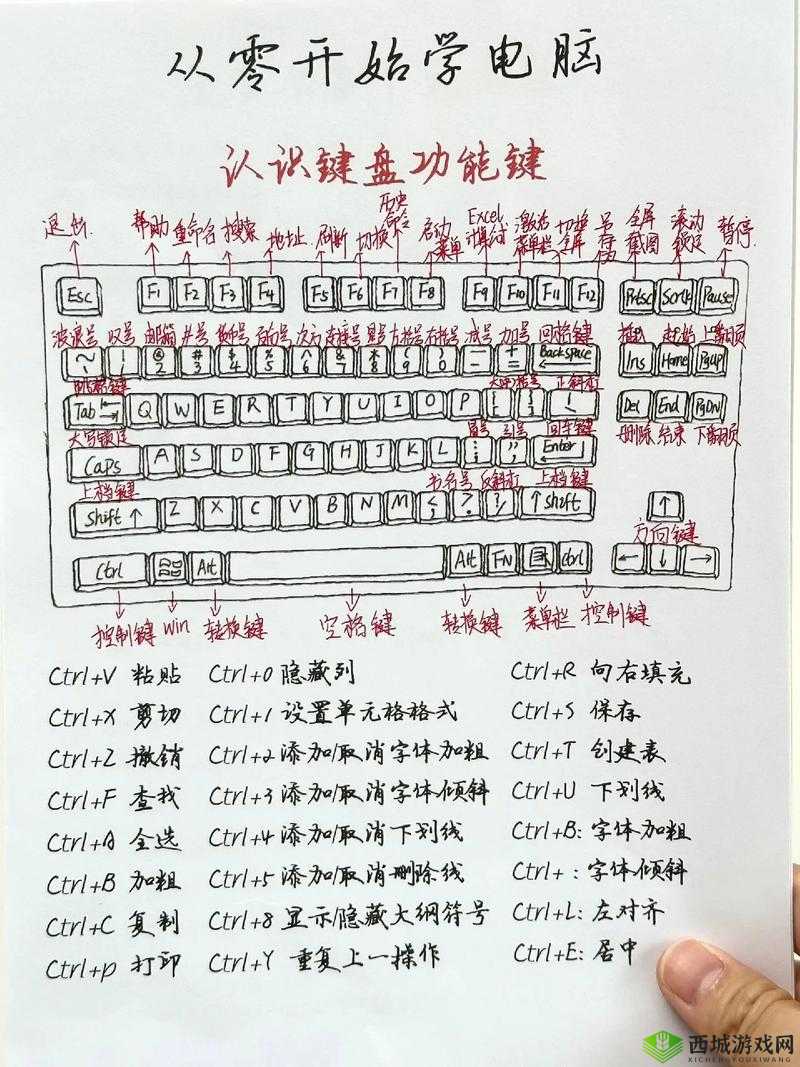 从零开始学电脑
认识键盘功能键
退出 帮助 重命名 搜索 地址 刷新 切换 历史命令 启动菜单 Excel计算公式 激活菜单栏 切换全屏 另存为 全屏截图 滚动锁定 暂停
Esc F1 F2 F3 F4 F5 F6 F7 F8 F9 F10 F11 F12 Prtsc Scrlk Pause
波浪号 叹号 邮箱 井号 货币号 百分号 次方 连接号 星号 左括号 右括号 减号 加号 回格键 插入 起始 上翻页
~ ! @ 2 # 3 $ 4 % 5 ^ 6 & 7 * 8 ( 9 ) 0 — - + = Backspace Ins Home PgUp
大中括号 正斜杠
Tab Q W E R T Y U I O P Del End PgDn
大写锁定 冒号 引号 回车键 删除 结束 下翻页
Caps A S D F G H J K L Enter
上档键 书名号 反斜杠 上档键
Shift ↑ Z X C V B N M ↑ Shift ↑
方向键
Ctrl Alt Alt FN Ctrl ← ↓ →
控制键 Win 转换键 空格键 转换键 菜单栏 控制键
Ctrl+V 粘贴 Ctrl+0 隐藏列 Ctrl+R 向右填充
Ctrl+X 剪切 Ctrl+1 设置单元格格式 Ctrl+S 保存
Ctrl+Z 撤销 Ctrl+2 添加/取消字体加粗 Ctrl+T 创建表
Ctrl+F 查找 Ctrl+3 添加/取消字体倾斜 Ctrl+U 下划线
Ctrl+A 全选 Ctrl+4 添加/取消下划线 Ctrl+B: 字体加粗
Ctrl+B 加粗 Ctrl+5 添加/取消删除线 Ctrl+ : 字体倾斜
Ctrl+C 复制 Ctrl+8 显示/隐藏大纲符号 Ctrl+L: 左对齐
Ctrl+P 打印 Ctrl+Y 重复上一操作 Ctrl+E: 居中
西城游戏网
XICHENGYOUXIWANG